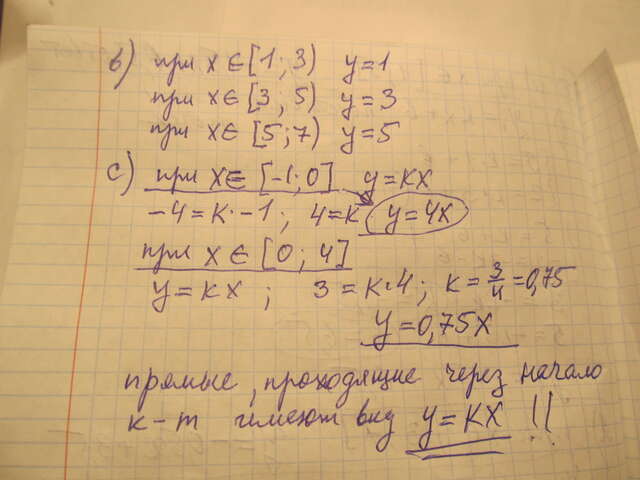 б) при x ∈ [1; 3) y = 1
при x ∈ [3; 5) y = 3
при x ∈ [5; 7) y = 5
с) при x ∈ [-1; 0] y = кx
-4 = к · -1 ; 4 = к y = 4x
при x ∈ [0; 4]
y = кx ; 3 = к · 4 ; к = 3/4 = 0,75
y = 0,75x
прямые, проходящие через начало
к-т имеют вид y = кx !!